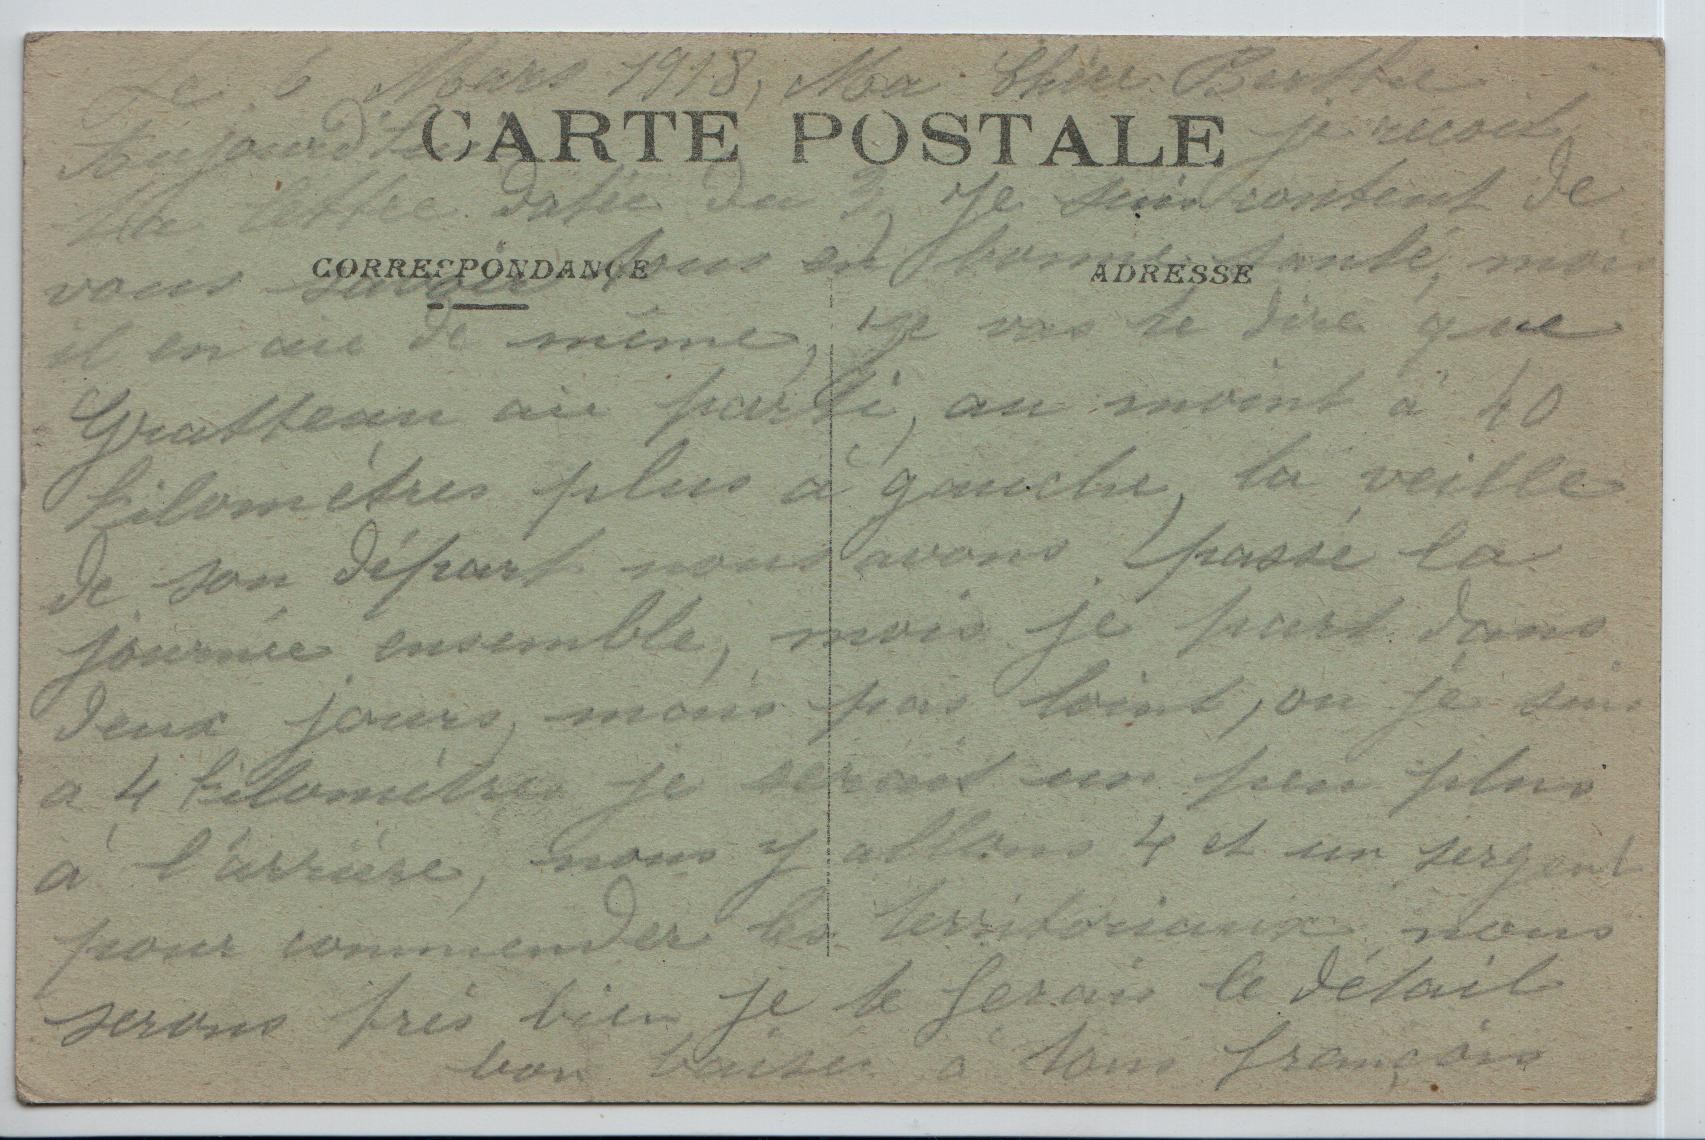 Le 6 Mars 1918, Ma Chère Berthe
CARTE POSTALE
aujourd'hui je recoit
ta lettre datée du 3, je suis content de
CORRESPONDANCE
ADRESSE
vous savoir tous en bonne santé, moi
il en aie de même, je vas te dire que
Gratteau aie parti, au moint à 40
kilomètres plus à gauche, la veille
de son départ nous avons passé la
journée ensemble, mois je part dans
deux jours, mais pas loint, ou je suis
a 4 kilomètres je serait un peu plus
à l'arrière, nous y allons 4 et un sergent
pour commender les territoriaux nous
serons très bien je te ferais le détail
bon baiser à tous françois